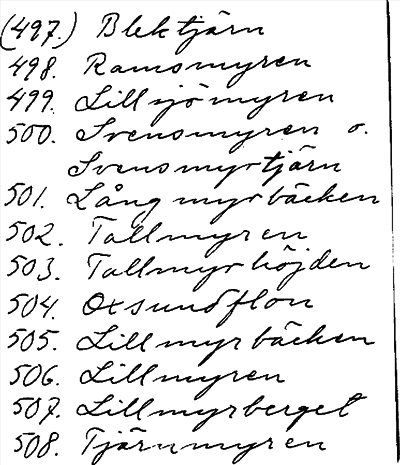 (497.) Blektjärn
498. Ramsmyren
499. Lillsjömyren
500. Svensmyren o.
Svensmyrtjärn
501. Långmyrbäcken
502. Tallmyren
503. Tallmyrhöjden
504. Oxsundflon
505. Lillmyrbäcken
506. Lillmyren
507. Lillmyrberget
508. Tjärnmyren